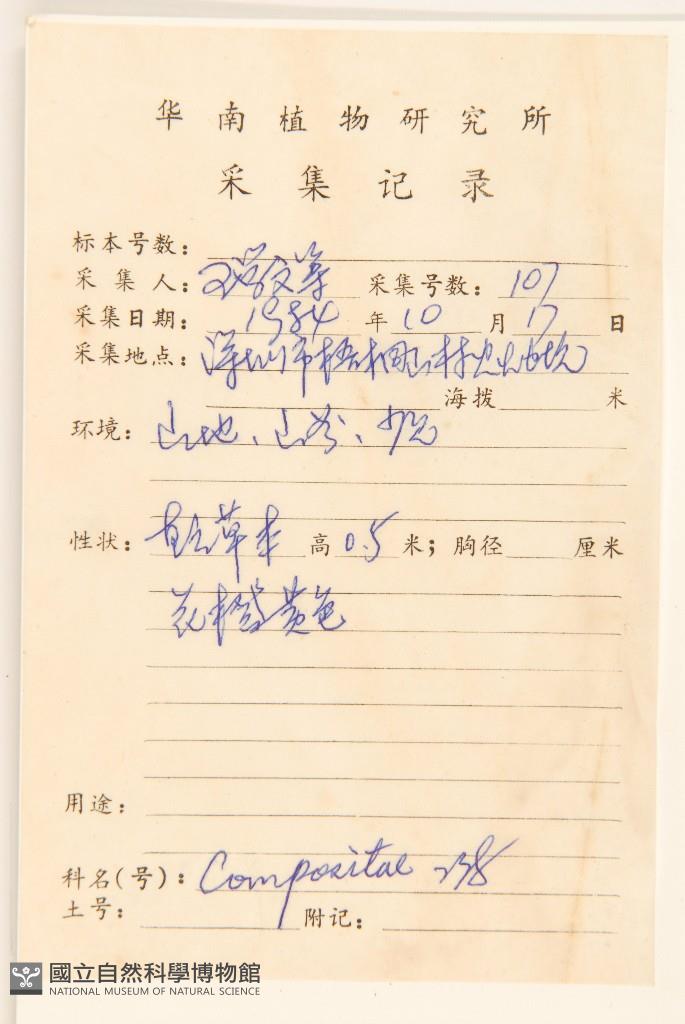 华南植物研究所
采集记录
标本号数：
采集人：王学文等 采集号数：107
采集日期：1984年10月17日
采集地点：深圳市梧桐山林
海拨 米
环境：山地、山谷、
性状：直立草本 高0.5米；胸径 厘米
花橙黄色
用途：
科名(号)：Compositae 238
土号： 附记：
國立自然科學博物館
NATIONAL MUSEUM OF NATURAL SCIENCE